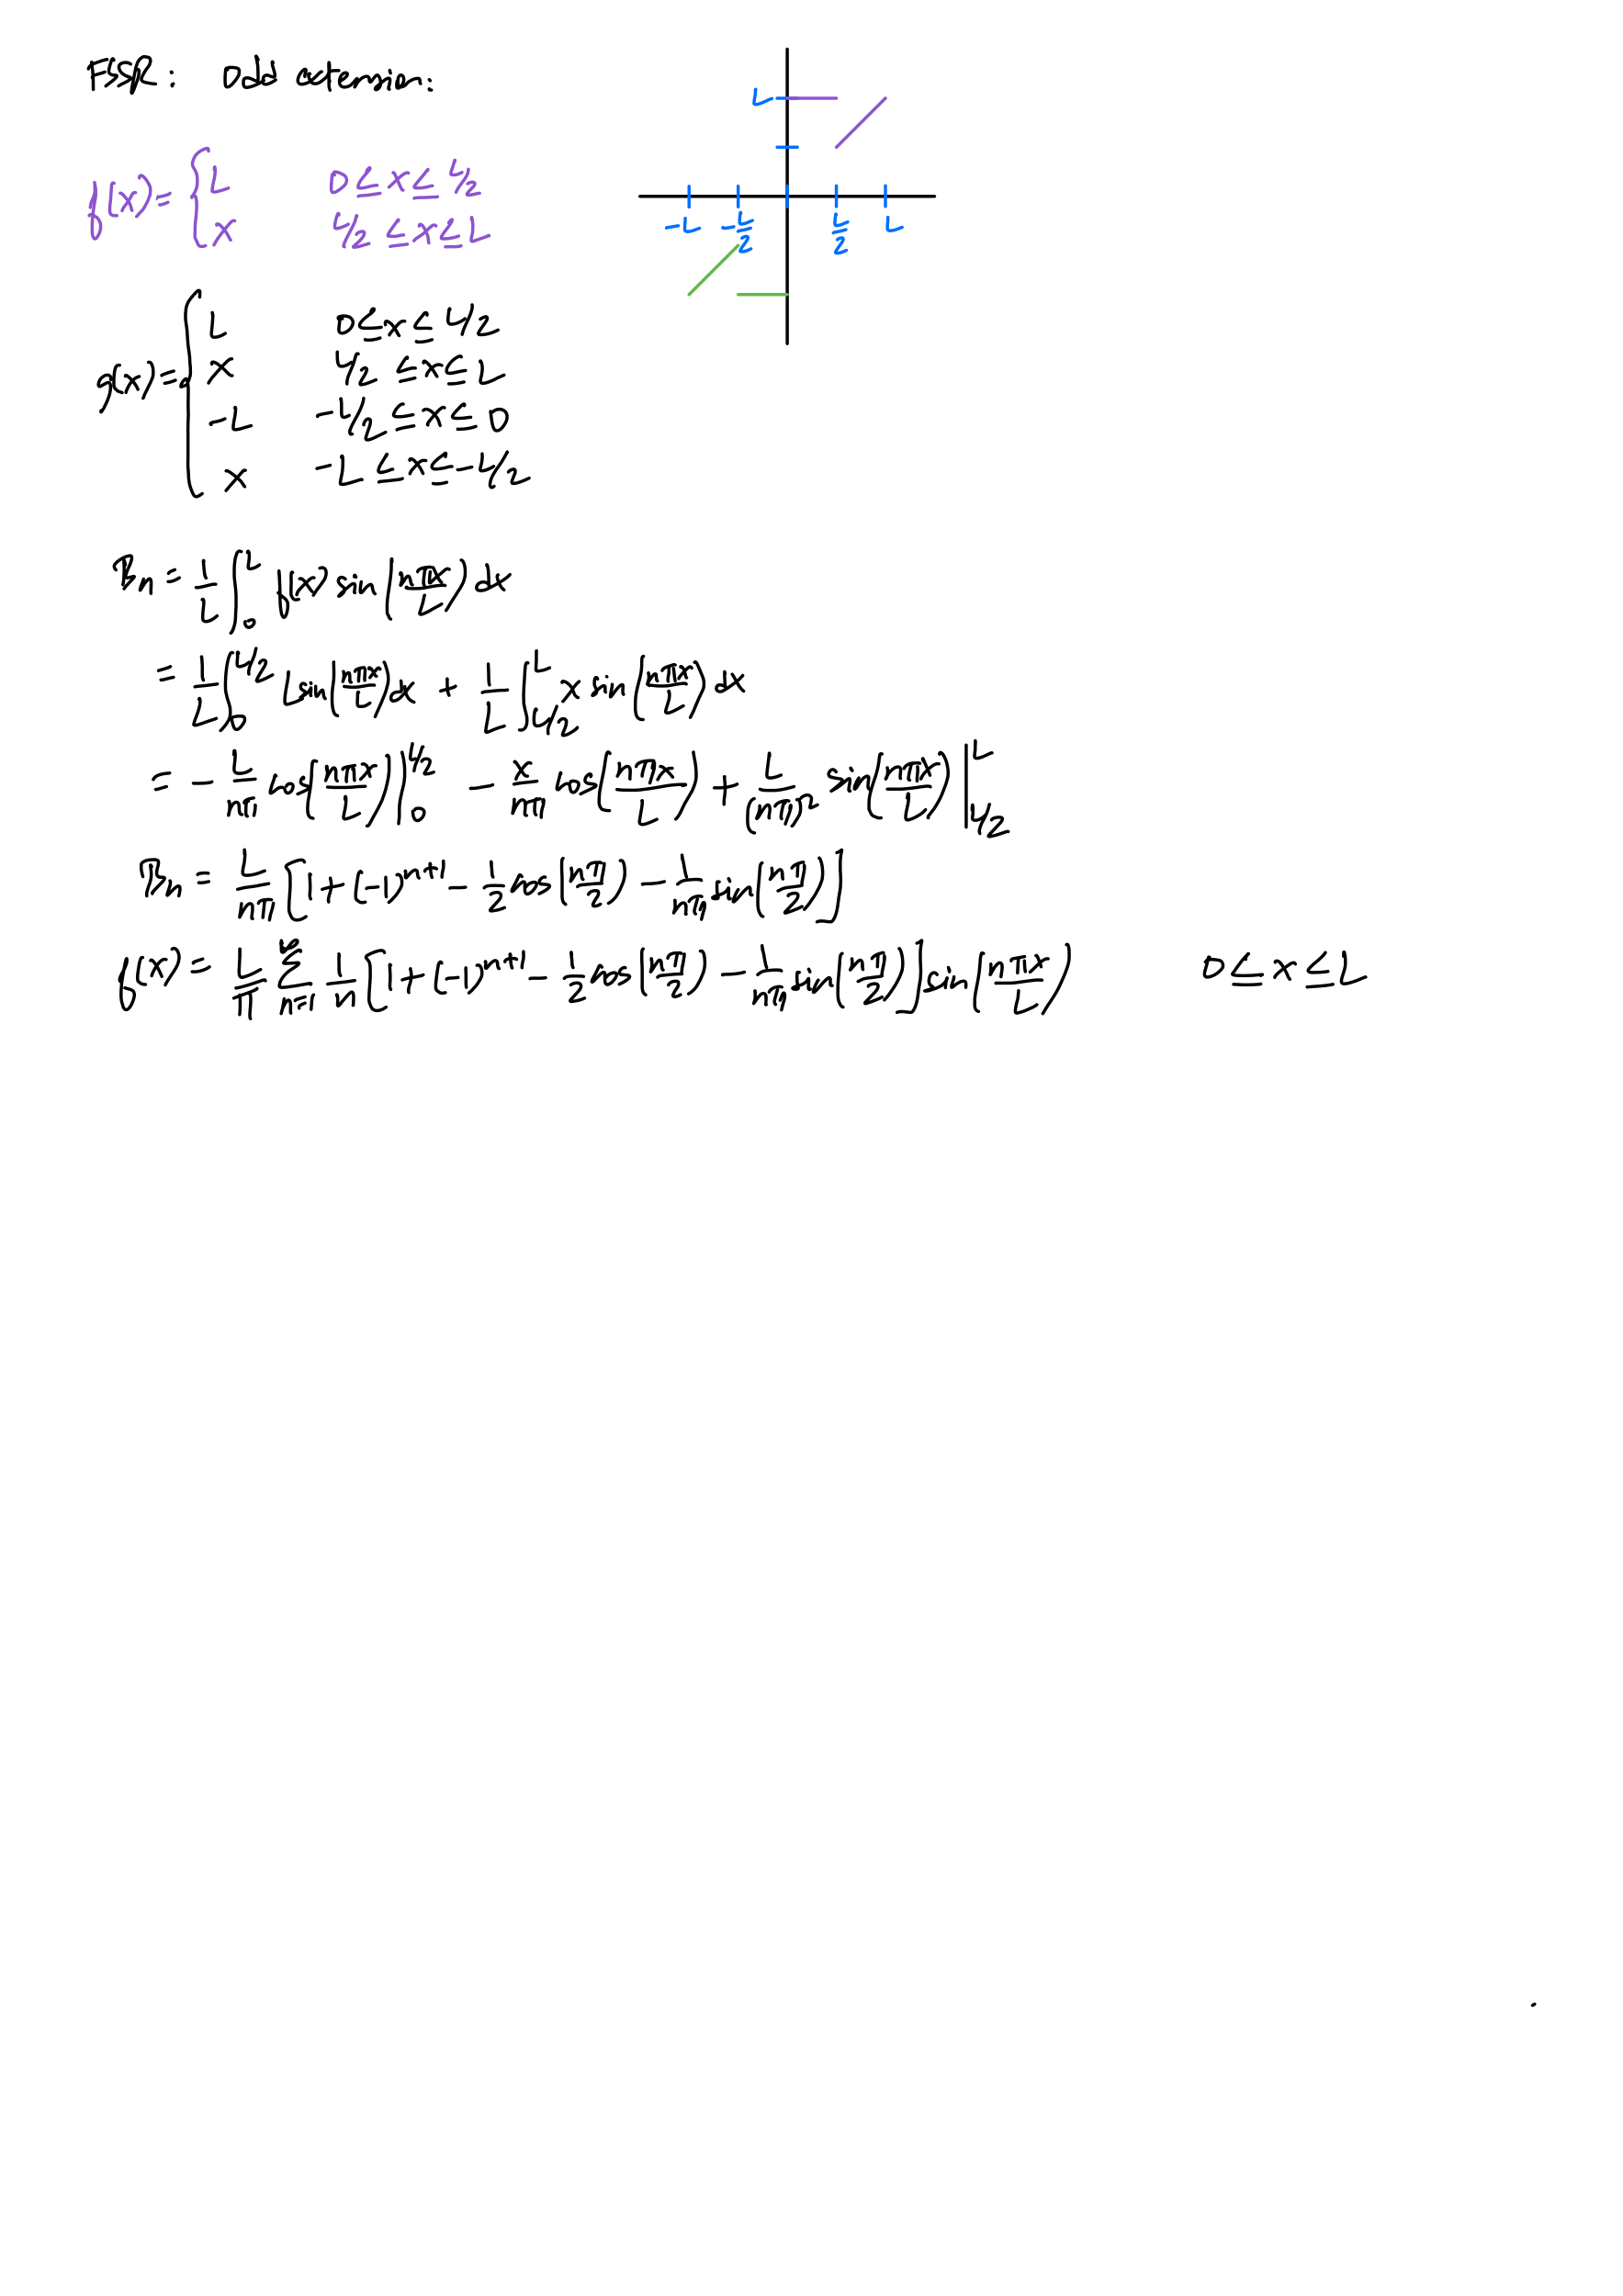 FSSR: Odd extension:
L
-L -L/2 L/2 L
f(x) = { L 0 ≤ x ≤ L/2
x L/2 ≤ x ≤ L
g(x) = { L 0 ≤ x ≤ L/2
x L/2 ≤ x ≤ L
-L -L/2 ≤ x ≤ 0
x -L ≤ x ≤ -L/2
Bn = 1/L ∫_0^L f(x) sin(nπx/L) dx
= 1/L ∫_0^{L/2} L sin(nπx/L) dx + 1/L ∫_{L/2}^L x sin(nπx/L) dx
= - L/nπ cos(nπx/L) |_0^{L/2} - x/nπ cos(nπx/L) + L/(nπ)² sin(nπx/L) |_{L/2}^L
Bn = L/nπ [1 + (-1)^{n+1} - 1/2 cos(nπ/2) - 1/nπ sin(nπ/2)]
f(x) = L/π Σ_{n=1}^∞ 1/n [1 + (-1)^{n+1} - 1/2 cos(nπ/2) - 1/nπ sin(nπ/2)] sin(nπx/L) 0 ≤ x ≤ L